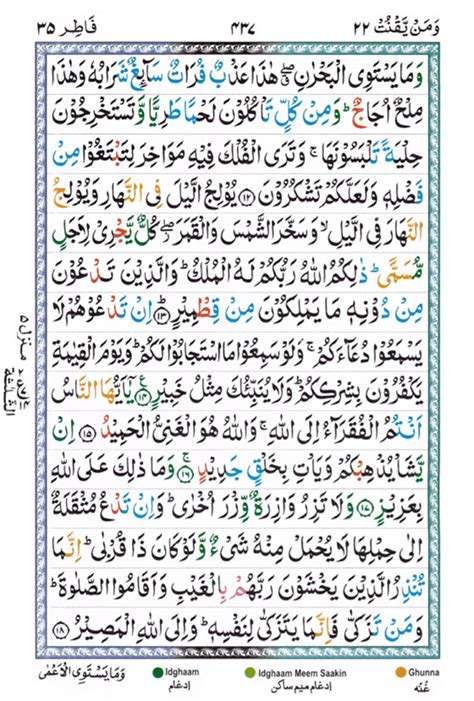 وَمَنْ يَّقْنُتْ ٢٢ ٤٣٧ فَاطِر ٣٥
وَمَا يَسْتَوِى الْبَحْرٰنِ ۖ هٰذَا عَذْبٌ فُرَاتٌ سَآئِغٌ شَرَابُهٗ وَهٰذَا
مِلْحٌ اُجَاجٌ ؕ وَمِنْ كُلٍّ تَاْكُلُوْنَ لَحْمًا طَرِيًّا وَّتَسْتَخْرِجُوْنَ
حِلْيَةً تَلْبَسُوْنَهَا ۚ وَتَرَى الْفُلْكَ فِيْهِ مَوَاخِرَ لِتَبْتَغُوْا مِنْ
فَضْلِهٖ وَلَعَلَّكُمْ تَشْكُرُوْنَ ﴿١٢﴾ يُوْلِجُ الَّيْلَ فِى النَّهَارِ وَيُوْلِجُ
النَّهَارَ فِى الَّيْلِ ۙ وَسَخَّرَ الشَّمْسَ وَالْقَمَرَ ۖ كُلٌّ يَّجْرِىْ لِاَجَلٍ
مُّسَمًّى ؕ ذٰلِكُمُ اللّٰهُ رَبُّكُمْ لَهُ الْمُلْكُ ؕ وَالَّذِيْنَ تَدْعُوْنَ
مِنْ دُوْنِهٖ مَا يَمْلِكُوْنَ مِنْ قِطْمِيْرٍ ؕ ﴿١٣﴾ اِنْ تَدْعُوْهُمْ لَا
يَسْمَعُوْا دُعَآءَكُمْ ۚ وَلَوْ سَمِعُوْا مَا اسْتَجَابُوْا لَكُمْ ؕ وَيَوْمَ الْقِيٰمَةِ
يَكْفُرُوْنَ بِشِرْكِكُمْ ؕ وَلَا يُنَبِّئُكَ مِثْلُ خَبِيْرٍ ﴿١٤﴾ يٰۤاَيُّهَا النَّاسُ
اَنْتُمُ الْفُقَرَآءُ اِلَى اللّٰهِ ۚ وَاللّٰهُ هُوَ الْغَنِىُّ الْحَمِيْدُ ﴿١٥﴾ اِنْ
يَّشَاْ يُذْهِبْكُمْ وَيَاْتِ بِخَلْقٍ جَدِيْدٍ ۚ ﴿١٦﴾ وَمَا ذٰلِكَ عَلَى اللّٰهِ
بِعَزِيْزٍ ﴿١٧﴾ وَلَا تَزِرُ وَازِرَةٌ وِّزْرَ اُخْرٰى ؕ وَاِنْ تَدْعُ مُثْقَلَةٌ
اِلٰى حِمْلِهَا لَا يُحْمَلْ مِنْهُ شَىْءٌ وَّلَوْ كَانَ ذَا قُرْبٰى ؕ اِنَّمَا
تُنْذِرُ الَّذِيْنَ يَخْشَوْنَ رَبَّهُمْ بِالْغَيْبِ وَاَقَامُوا الصَّلٰوةَ ؕ
وَمَنْ تَزَكّٰى فَاِنَّمَا يَتَزَكّٰى لِنَفْسِهٖ ؕ وَاِلَى اللّٰهِ الْمَصِيْرُ ﴿١٨﴾
منزل ٥
وَمَا يَسْتَوِى الْاَعْمٰى
Idghaam Idghaam Meem Saakin Ghunna
اِدغام اِدغام میم ساکن غُنّه